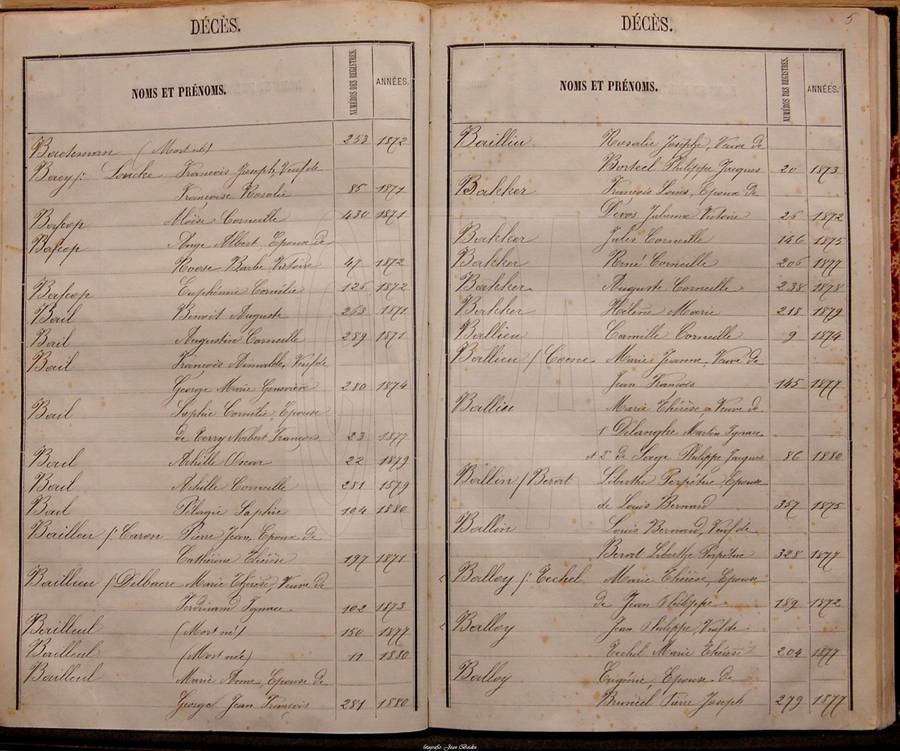 DÉCÈS.
NOMS ET PRÉNOMS. NUMÉROS DES REGISTRES. ANNÉES.
(Mort né) 253 1872
Baey f: Loncke François Joseph, Veuf de
Françoise Rosalie 85 1871
Moïse Corneille 430 1871
Ange Albert, Epoux de
Roose Barbe Victoire 47 1872
Euphémie Cornélie 125 1872
Bail Benoit Auguste 253 1871
Bail Augustin Corneille 289 1871
Bail François Aimable, Veuf de
George Marie Geneviève 280 1874
Bail Sophie Cornélie Epouse
de Norbert François 23 1877
Bail Achille Oscar 22 1879
Bail Achille Corneille 281 1879
Bail Pélagie Sophie 104 1880
Bailleu f: Caron Pierre Jean, Epoux de
Cathérine Thérèse 197 1871
Baillieu f: Delbaere Marie Thérèse, Veuve de
Ferdinand Ignace 102 1873
Bailleul (Mort né) 150 1877
Bailleul (Mort née) 11 1880
Bailleul Marie Anne, Epouse de
George Jean François 281 1880
DÉCÈS. 5
NOMS ET PRÉNOMS. NUMÉROS DES REGISTRES. ANNÉES.
Rosalie Josèphe, Veuve de
Philippe Jacques 20 1873
Bakker François Louis, Epoux de
Devos Julienne Victoire 25 1872
Bakker Jules Corneille 146 1875
Bakker René Corneille 206 1877
Bakker Auguste Corneille 238 1878
Bakker Hélène Marie 218 1879
Ballieu Camille Corneille 9 1874
Ballieu f: Marie Jeanne, Veuve de
Jean François 145 1877
Marie Thérèse, Veuve de
1 Delanghe Martin Ignace
et 2 de Philippe Jacques 86 1880
Liberthe Perpétue, Epouse
de Louis Bernard 357 1875
Louis Bernard, Veuf de
Liberthe Perpétue 328 1877
Balloy f: Marie Thérèse, Epouse
de Jean Philippe 189 1872
Balloy Jean Philippe, Veuf de
Marie Thérèse 204 1877
Balloy Eugénie, Epouse de
Pierre Joseph 279 1877